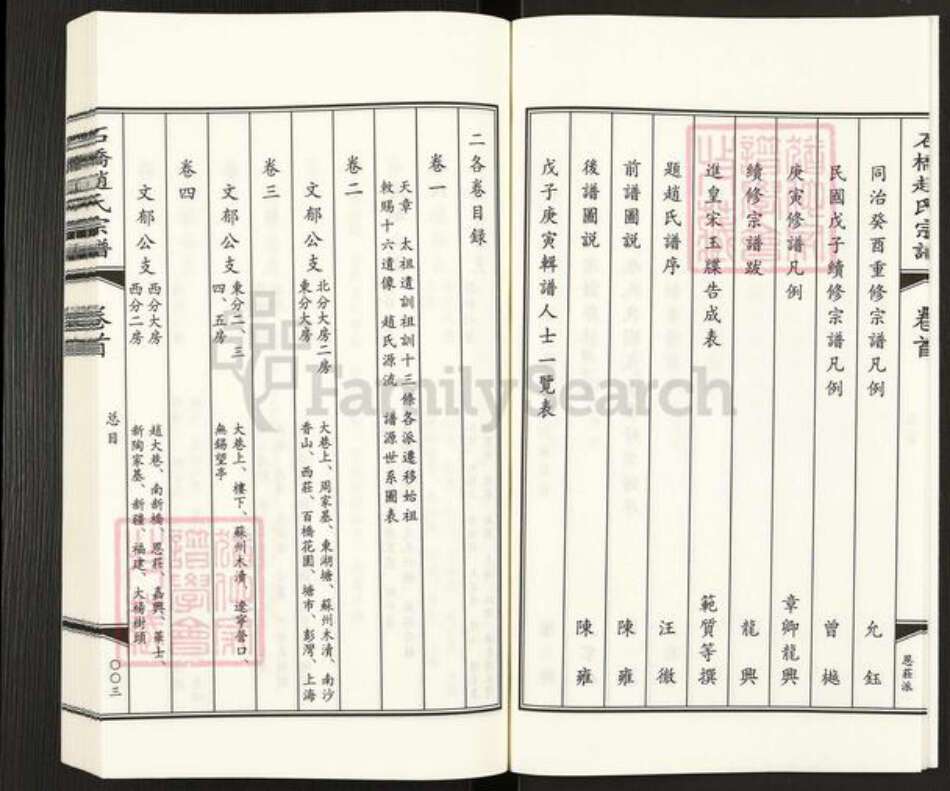 石橋趙氏宗譜 卷首 恩莊派
同治癸酉重修宗譜凡例 允鈺
民國戊子續修宗譜凡例 曾樾
庚寅修譜凡例 章卿龍興
續修宗譜跋 龍興
進皇宋玉牒告成表 範質等撰
題趙氏譜序 汪徹
前譜圖說 陳雍
後譜圖說 陳雍
戊子庚寅輯譜人士一覽表
二各卷目錄
卷一
天章 太祖遺訓祖訓十三條各派遷移始祖
敕賜十六遺像 趙氏源流 譜源世系圖表
卷二
文郁公支
北分大房二房 大巷上、周家基、東湖塘、蘇州木瀆、南沙
東分大房 香山、西莊、百橋花園、塘市、彭灣、上海
卷三
文郁公支
東分二、三 大巷上、樓下、蘇州木瀆、遼寧營口、
四、五房 無錫望亭
卷四
文郁公支
西分大房 趙大巷、南新橋、恩莊、嘉興、華士、
西分二房 新陶家基、新疆、福建、大楊樹頭
石橋趙氏宗譜 卷首 总目 〇〇三
FamilySearch